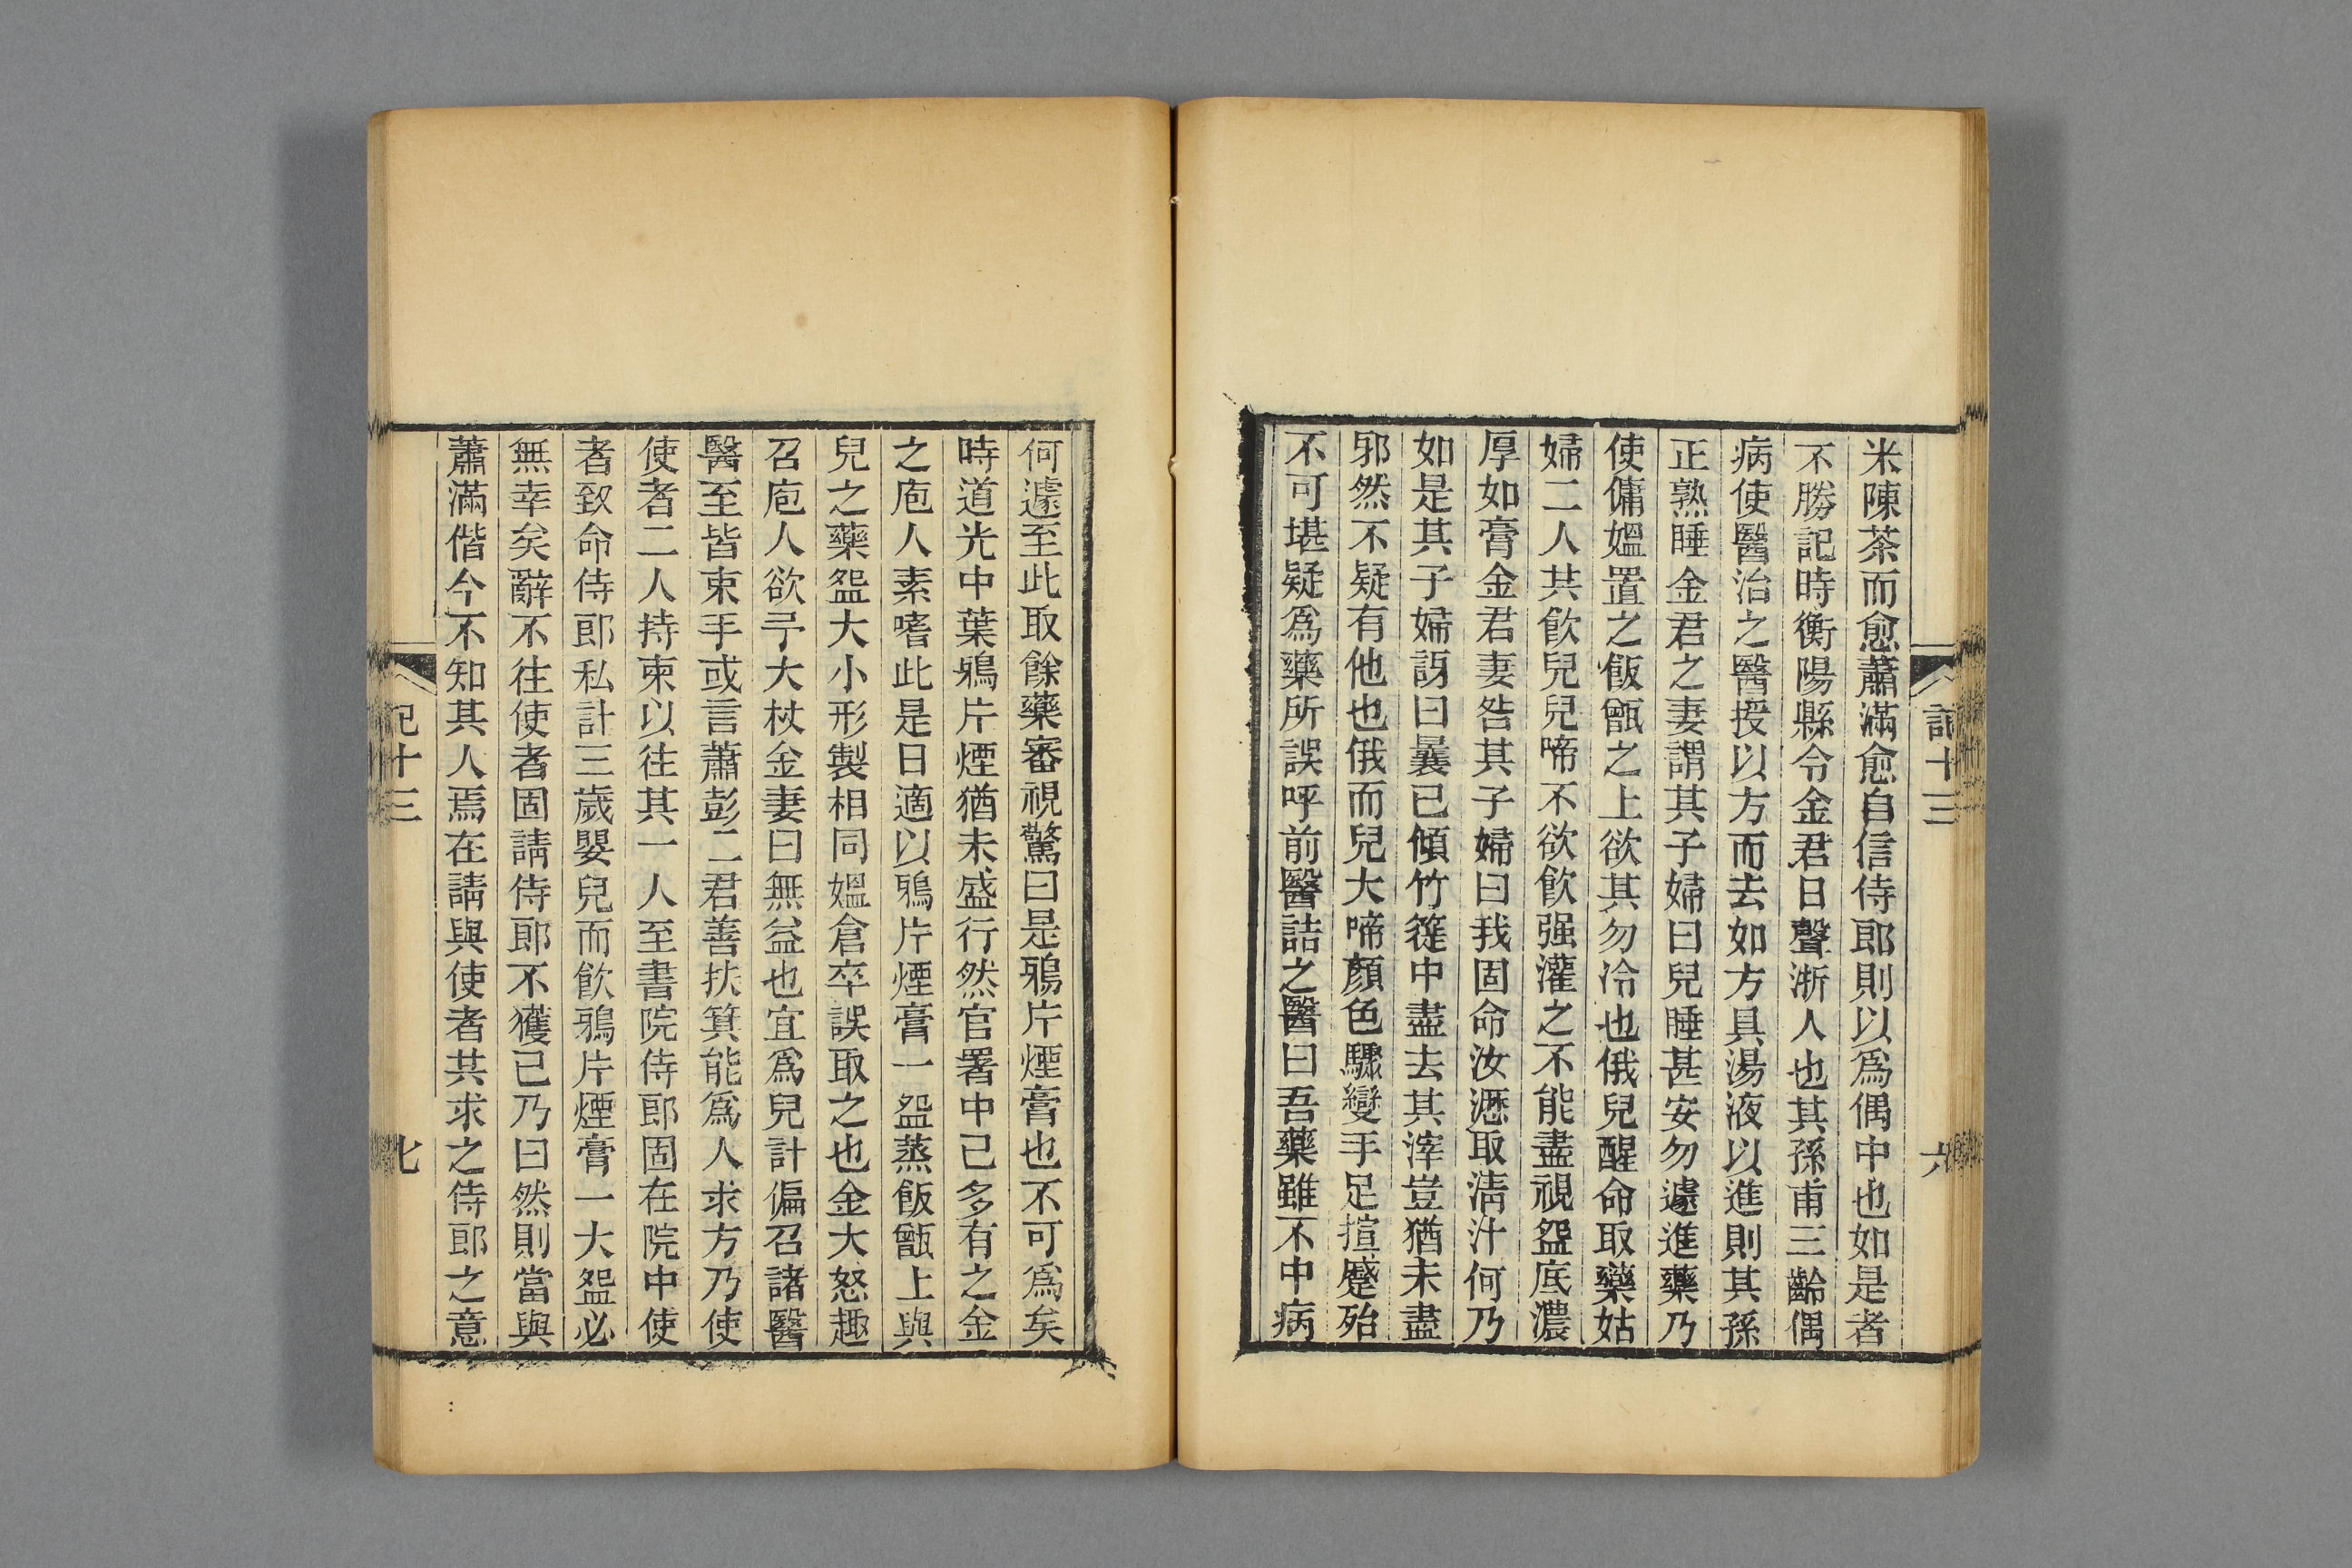 米陳茶而愈蕭滿愈自信侍郎則以爲偶中也如是者
不勝記時衡陽縣令金君日聲浙人也其孫甫三齡偶
病使醫治之醫授以方而去如方具湯液以進則其孫
正熟睡金君之妻謂其子婦曰兒睡甚安勿遽進藥乃
使傭媼置之飯甑之上欲其勿冷也俄兒醒命取藥姑
婦二人共飮兒兒啼不欲飮强灌之不能盡視盌底濃
厚如膏金君妻咎其子婦曰我固命汝瀝取淸汁何乃
如是其子婦訝曰曩已傾竹簁中盡去其滓豈猶未盡
邪然不疑有他也俄而兒大啼顏色驟變手足揎蹙殆
不可堪疑爲藥所誤呼前醫詰之醫曰吾藥雖不中病
記十三
六
何遽至此取餘藥審視驚曰是鴉片煙膏也不可爲矣
時道光中葉鴉片煙猶未盛行然官署中已多有之金
之庖人素嗜此是日適以鴉片煙膏一盌蒸飯甑上與
兒之藥盌大小形製相同媼倉卒誤取之也金大怒趣
召庖人欲予大杖金妻曰無益也宜爲兒計徧召諸醫
醫至皆束手或言蕭彭二君善扶箕能爲人求方乃使
使者二人持柬以往其一人至書院侍郎固在院中使
者致命侍郎私計三歲嬰兒而飮鴉片煙膏一大盌必
無幸矣辭不往使者固請侍郎不獲已乃曰然則當與
蕭滿偕今不知其人焉在請與使者共求之侍郎之意
記十三
七